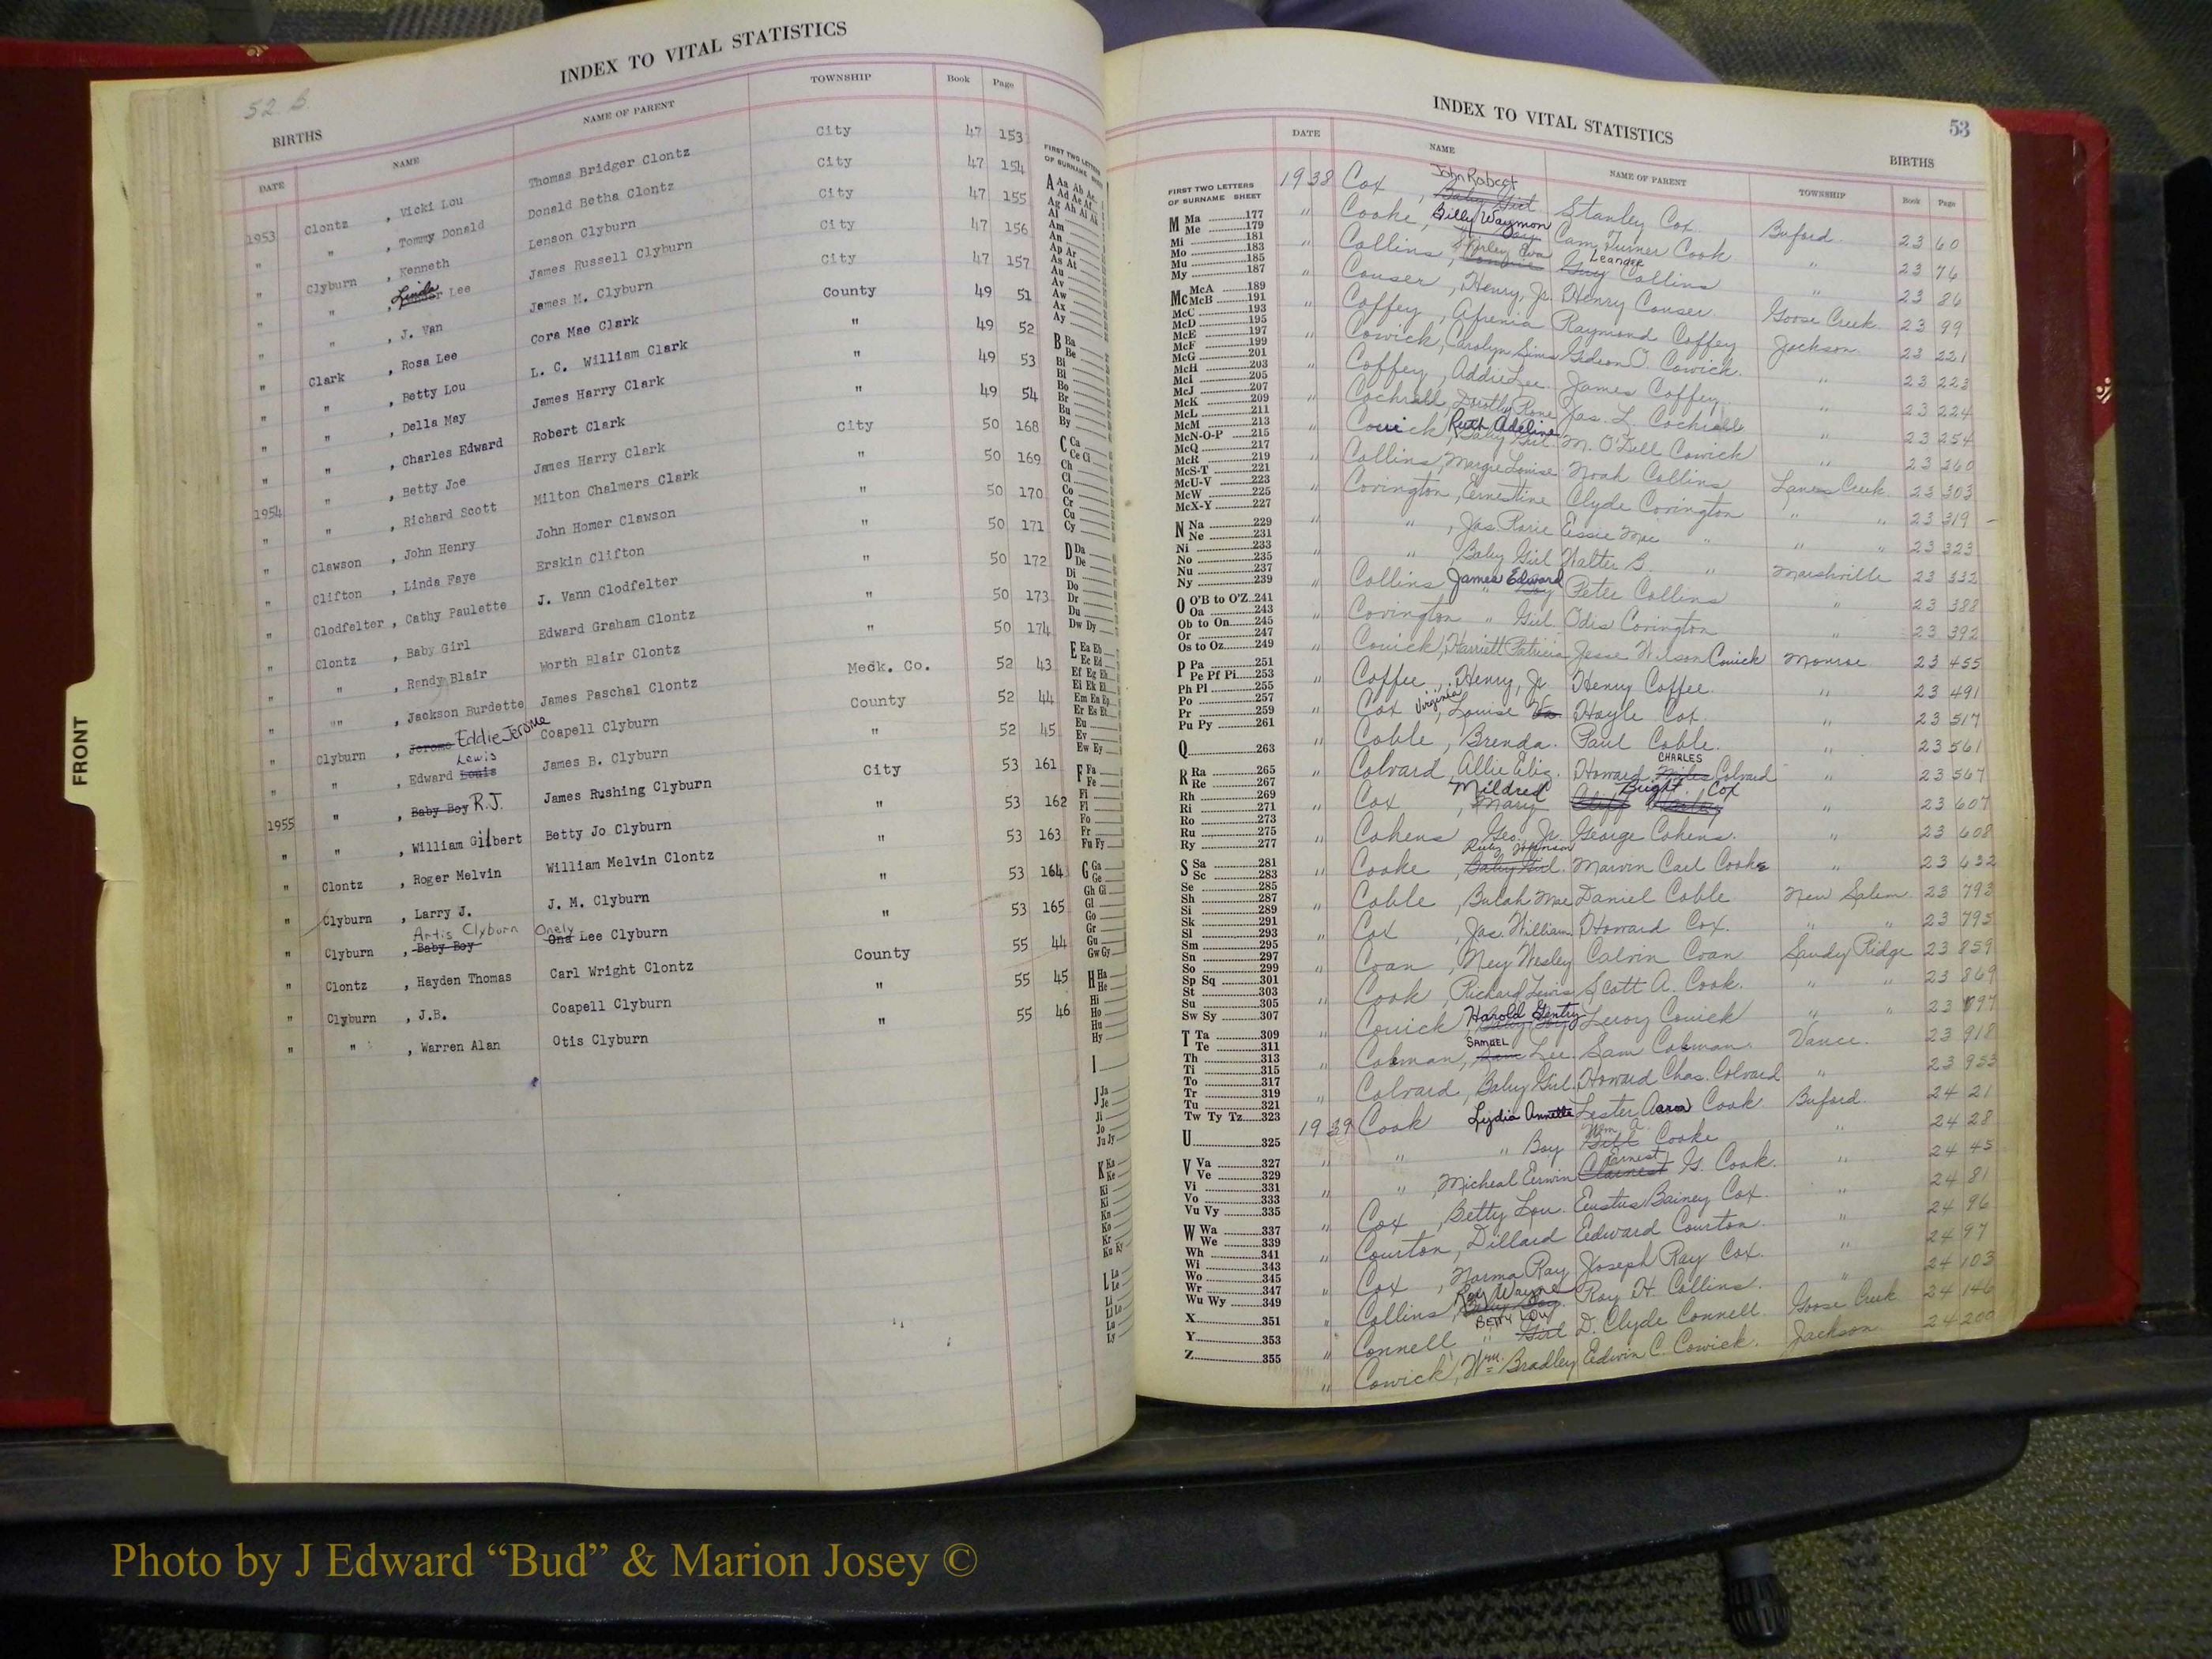 52 B.
INDEX TO VITAL STATISTICS
BIRTHS
DATE NAME NAME OF PARENT TOWNSHIP Book Page
1953 Clontz , Vicki Lou Thomas Bridger Clontz City 47 153
" " , Tommy Donald Donald Betha Clontz City 47 154
" Clyburn , Kenneth Lenson Clyburn City 47 155
" " , Linda Lee James Russell Clyburn City 47 156
" " , J. Van James M. Clyburn City 47 157
" Clark , Rosa Lee Cora Mae Clark County 49 51
" " , Betty Lou L. C. William Clark " 49 52
" " , Della May James Harry Clark " 49 53
" " , Charles Edward Robert Clark " 49 54
" " , Betty Joe James Harry Clark City 50 168
1954 " , Richard Scott Milton Chalmers Clark " 50 169
" Clawson , John Henry John Homer Clawson " 50 170
" Clifton , Linda Faye Erskin Clifton " 50 171
" Clodfelter , Cathy Paulette J. Vann Clodfelter " 50 172
" Clontz , Baby Girl Edward Graham Clontz " 50 173
" " , Randy Blair Worth Blair Clontz " 50 174
" "" , Jackson Burdette James Paschal Clontz Meck. Co. 52 43
" Clyburn , Jerome Eddie Jerome Coapell Clyburn County 52 44
" " , Edward Louis Lewis James B. Clyburn " 52 45
1955 " , Baby Boy R.J. James Rushing Clyburn City 53 161
" " , William Gilbert Betty Jo Clyburn " 53 162
" Clontz , Roger Melvin William Melvin Clontz " 53 163
" Clyburn , Larry J. J. M. Clyburn " 53 164
Artis Clyburn Onely
" Clyburn , Baby Boy Ona Lee Clyburn " 53 165
" Clontz , Hayden Thomas Carl Wright Clontz County 55 44
" Clyburn , J.B. Coapell Clyburn " 55 45
" " , Warren Alan Otis Clyburn " 55 46
FRONT
FIRST TWO LETTERS
OF SURNAME SHEET
A Aa Ab Ac
Ad Ae Af
Ag Ah Ai Ak
Al
Am
An
Ap Ar
As At
Au
Av
Aw
Ax
Ay
B Ba
Be
Bi
Bl
Bo
Br
Bu
By
C Ca
Ce Ci
Ch
Cl
Co
Cr
Cu
Cy
D Da
De
Di
Do
Dr
Du
Dw Dy
E Ea Eb
Ec Ed
Ef Eg Eh
Ei Ek El
Em En Ep
Er Es Et
Eu
Ev
Ew Ey
F Fa
Fe
Fi
Fl
Fo
Fr
Fu Fy
G Ga
Ge
Gh Gi
Gl
Go
Gr
Gu
Gw Gy
H Ha
He
Hi
Ho
Hu
Hy
I
J Ja
Je
Ji
Jo
Ju Jy
K Ka
Ke
Ki
Kl
Kn
Ko
Kr
Ku Ky
L La
Le
Li
Ll Lo
Lu
Ly
INDEX TO VITAL STATISTICS
53
BIRTHS
DATE NAME NAME OF PARENT TOWNSHIP Book Page
FIRST TWO LETTERS
OF SURNAME SHEET
M Ma 177
Me 179
Mi 181
Mo 183
Mu 185
My 187
Mc McA 189
McB 191
McC 193
McD 195
McE 197
McF 199
McG 201
McH 203
McI 205
McJ 207
McK 209
McL 211
McM 213
McN-O-P 215
McQ 217
McR 219
McS-T 221
McU-V 223
McW 225
McX-Y 227
N Na 229
Ne 231
Ni 233
No 235
Nu 237
Ny 239
O O'B to O'Z 241
Oa 243
Ob to On 245
Or 247
Os to Oz 249
P Pa 251
Pe Pf Pi 253
Ph Pl 255
Po 257
Pr 259
Pu Py 261
Q 263
R Ra 265
Re 267
Rh 269
Ri 271
Ro 273
Ru 275
Ry 277
S Sa 281
Sc 283
Se 285
Sh 287
Si 289
Sk 291
Sl 293
Sm 295
Sn 297
So 299
Sp Sq 301
St 303
Su 305
Sw Sy 307
T Ta 309
Te 311
Th 313
Ti 315
To 317
Tr 319
Tu 321
Tw Ty Tz 323
U 325
V Va 327
Ve 329
Vi 331
Vo 333
Vu Vy 335
W Wa 337
We 339
Wh 341
Wi 343
Wo 345
Wr 347
Wu Wy 349
X 351
Y 353
Z 355
John Robert
1938 Cox , Baby Girl Stanley Cox Buford 23 60
" Cooke, Billy Waymon Cam Turner Cook " 23 76
Shirley Eva Leander
" Collins, Guy Collins " 23 86
" Couser , Henry, Jr. Henry Couser Goose Creek 23 99
" Coffey , Afrenia Raymond Coffey Jackson 23 221
" Cowick, Carolyn Sims Gideon O. Cowick " 23 223
" Coffey , Addie Lee James Coffey " 23 224
" Cochrall, Dorothy Rone Jas. L. Cochrall " 23 254
" Cowick Ruth Adeline Baby Girl M. O'Dell Cowick " 23 260
" Collins, Margie Louise Noah Collins Lanes Creek 23 303
" Covington, Ernestine Clyde Covington " " 23 319
" " , Jas. Rorie Essie Mae " " " 23 323
" " , Baby Girl Walter B. " Marshville 23 332
" Collins James Edward Boy Peter Collins " 23 388
" Covington " Girl Odis Covington " 23 392
" Cowick, Harriett Patricia Jesse Wilson Cowick Monroe 23 455
" Coffee , Henry, Jr. Henry Coffee " 23 491
" Cox Virginia, Louise Va. Hoyle Cox " 23 517
" Coble , Brenda Paul Coble " 23 561
CHARLES
" Colvard, Allie Eliz. Howard Miles Colvard " 23 567
Mildred Bright Cox
" Cox , Mary Cliff " 23 607
" Cohens Geo. Jr. George Cohens " 23 608
Ruby Johnson
" Cooke , Baby Girl Marvin Carl Cooke " 23 632
" Coble , Bulah Mae Daniel Coble New Salem 23 793
" Cox , Jas. William Howard Cox " " 23 795
" Coan , Ney Wesley Calvin Coan Sandy Ridge 23 859
" Cook , Richard Lewis Scott A. Cook " " 23 869
" Cowick Harold Gentry Baby Boy Leroy Cowick " " 23 897
SAMUEL
" Colman, Sam Lee Sam Colman Vance 23 918
" Colvard, Baby Girl Howard Chas. Colvard " 23 953
1939 Cook Lydia Annette Lester Aaron Cook Buford 24 21
Wm. A.
" " " Boy Bill Cooke " 24 28
Ernest
" " , Micheal Erwin G. Cook " 24 45
" Cox , Betty Lou Eustus Bainey Cox " 24 81
" Courton, Dillard Edward Courton " 24 96
" Cox , Norma Ray Joseph Ray Cox " 24 97
" Collins, Roy Wayne Baby Boy Roy H. Collins " 24 103
Betty Lou
" Connell " Girl D. Clyde Connell Goose Creek 24 146
" Cowick, Wm. Bradley Edwin C. Cowick Jackson 24 200
Photo by J Edward “Bud” & Marion Josey ©